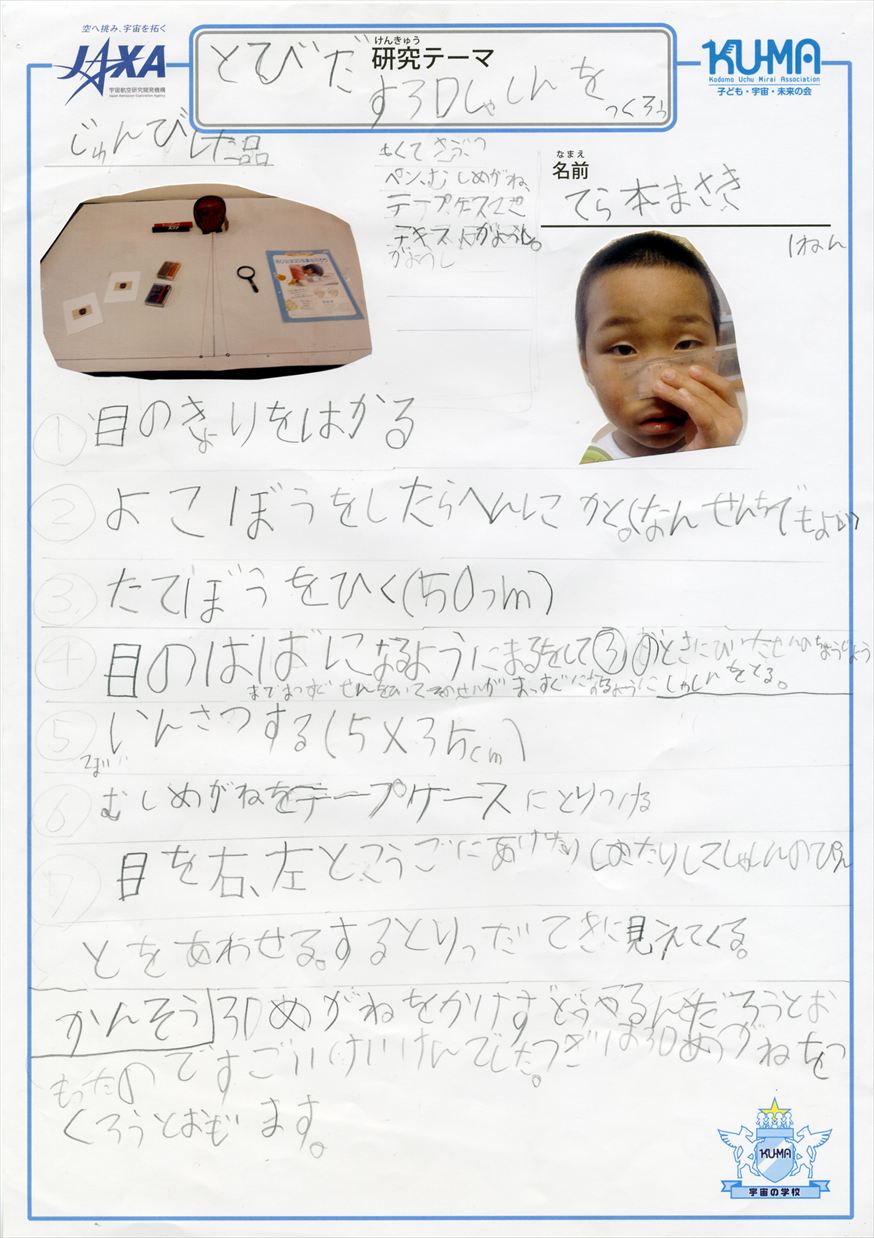 空へ挑み、宇宙を拓く
JAXA
宇宙航空研究開発機構
Japan Aerospace Exploration Agency
けんきゅう
研究テーマ
とびだ
す3Dしゃしんを
つくろう
KU-MA
Kodomo Uchu Mirai Association
子ども・宇宙・未来の会
じゅんびした品
ペン、むしめがね、
テープケース
テキスト
がようし
なまえ
名前
てら本まさき
1ねん
① 目のきょりをはかる
② よこぼうをしたらへんにかく。(なんせんちでもよい)
③ たてぼうをひく(50cm)
④ 目のはばになるようにまるをして③のときにひいたせんのちょうじょう
までまっすぐせんをひいてそのせんがまっすぐになるようにしゃしんをとる。
⑤ いんさつする(5×3.5cm)
⑥ むしめがねをテープケースにとりつける
⑦ 目を右、左とこうごにあけたりしめたりしてしゃしんのぴん
とをあわせる。するとりったいてきに見えてくる。
かんそう 3Dめがねをかけずどうやるんだろうとお
もったのですごいけいけんでした。つぎは3Dめがねをつ
くろうとおもいます。
KU-MA
宇宙の学校